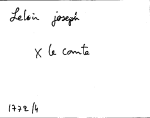 Leloin joseph
X le comte
1772/4